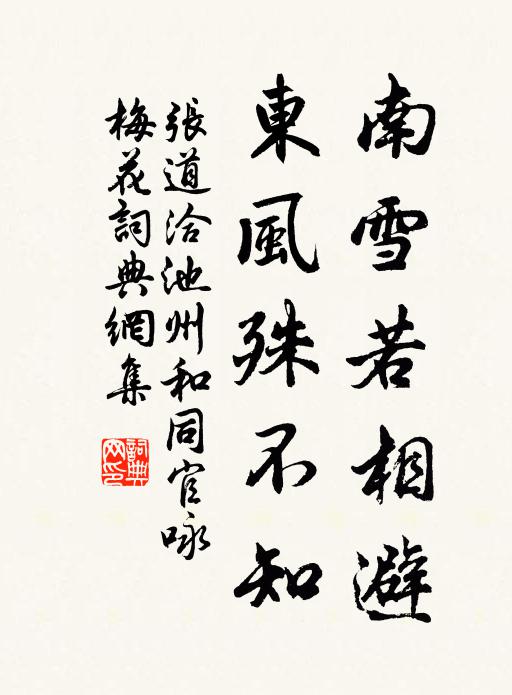 南雪若相避
東風殊不知
張道洽池州和同官咏
梅花詞典網集
詞典
网印